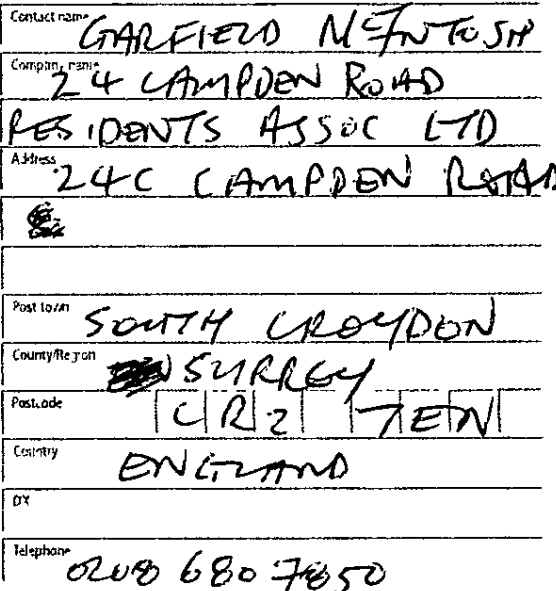 Contact name
GARFIELD McINTOSH
Company name
24 CAMPDEN ROAD
RESIDENTS ASSOC LTD
Address
24C CAMPDEN ROAD
Post town
SOUTH CROYDON
County/Region
SURREY
Postcode
CR2 7EN
Country
ENGLAND
DX
Telephone
0208 680 7850